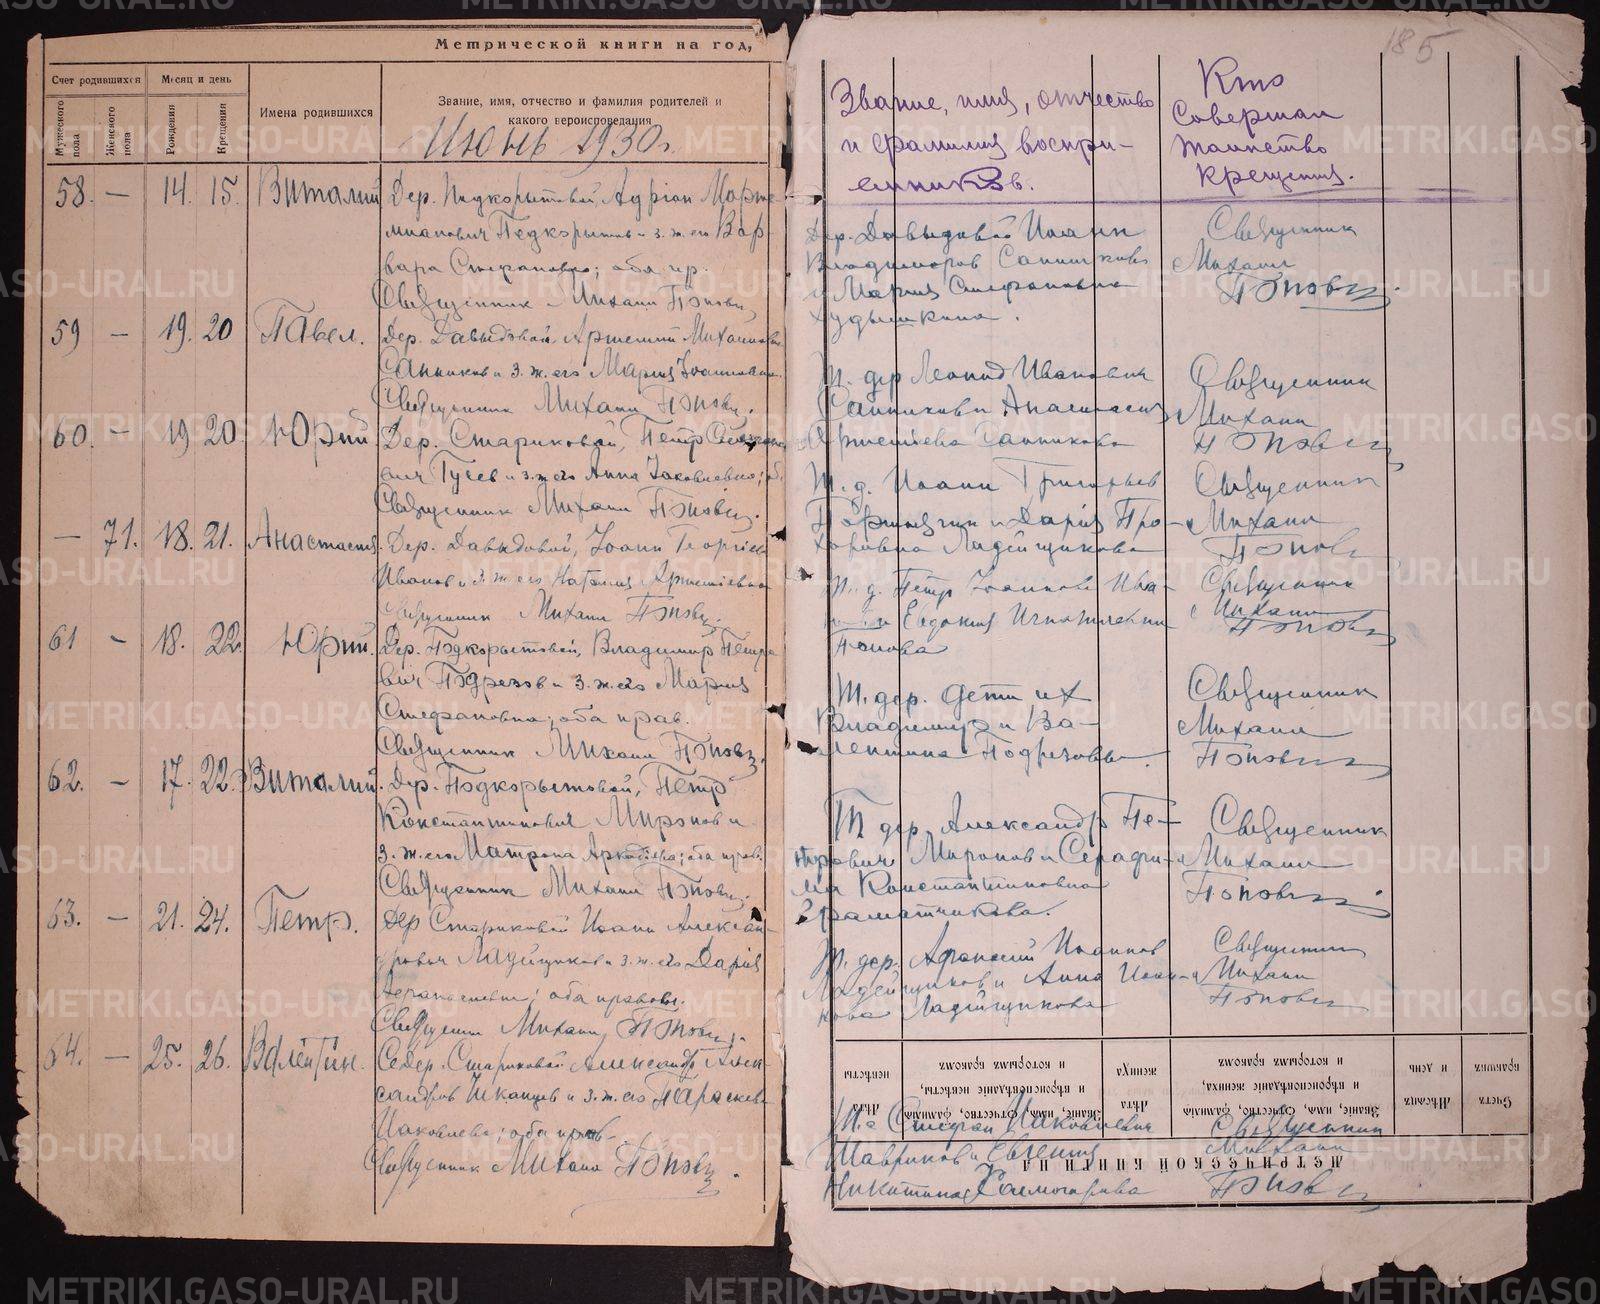 Метрической книги на год,
Счет родившихся
Месяц и день
Имена родившихся
Звание, имя, отчество и фамилия родителей и
какого вероисповедания
Мужеского пола
Женского пола
Рождения
Крещения
Июнь 1930 г.
58. — 14. 15. Виталий Дер. Подкорытовой, Адриан
Подкорытов и з. ж. его Вар-
вара Стефановна; оба пр.
Священник Михаил Попов
59 — 19. 20 Павел. Дер. Давыдовой, Артемий Михайлович
Санников и з. ж. его Мария Иоанновна
Священник Михаил Попов.
60. — 19. 20 Юрий Дер. Стариковой, Петр
вич Гусев и з. ж. его Анна Иаковлевна; об.
Священник Михаил Попов.
— 71. 18. 21. Анастасия. Дер. Давыдовой, Иоанн Георгиев
Иванов и з. ж. его Наталия Артемиевна
Священник Михаил Попов.
61 — 18. 22 Юрий. Дер. Подкорытовой, Владимир Петро
вич Подрезов и з. ж. его Мария
Стефановна; оба прав.
Священник Михаил Попов.
62. — 17. 22. Виталий. Дер. Подкорытовой, Петр
Константинович Миронов и
з. ж. его Матрона оба прав.
Священник Михаил Попов.
63. — 21. 24. Петр. Дер Стариковой Иоанн Алексан-
дрович Ладейщиков и з. ж. его Дария
оба правосл.
Священник Михаил Попов.
64. — 25. 26. Валентин. Стариковой Александр Алек-
сандров и з. ж. его Параскева
Иаковлева; оба прав-
Священник Михаил Попов.
185
Звание, имя, отчество
и фамилия воспри-
емников.
Кто
Совершал
таинство
крещения.
Дер. Давыдовой Иоанн
Владимиров Санников
и Мария Стефановна
Худышкина.
Священник
Михаил
Попов
Т. дер Леонид Иванович
Санников и Анастасия
Артемиева Санникова
Священник
Михаил
Попов
Т. д. Иоанн Григорьев
и Дария Про-
хоровна Ладейщикова
Священник
Михаил
Попов
Т. д. Петр Иоаннов Ива-
нов и Евдокия
Попова
Священник
Михаил
Попов
Т. дер. дети их
Владимир и Ва-
лентина Подрезовы.
Священник
Михаил
Попов
Т. дер. Александр Пе-
трович Миронов и Серафи-
ма Константиновна
Священник
Михаил
Попов
Т. дер. Афанасий Иоаннов
Ладейщиков и Анна Иоан-
нова Ладейщикова
Священник
Михаил
Попов
Счетъ браковъ
Мѣсяцъ и день
Званіе, имя, отчество, фамилія
и вѣроисповѣданіе жениха,
и которымъ бракомъ
Лѣта жениха
Званіе, имя, отчество, фамилія
и вѣроисповѣданіе невѣсты,
и которымъ бракомъ
Лѣта невѣсты
МЕТРИЧЕСКОЙ КНИГИ НА
Стефан Николаевич
Шавриков и Евгения
Никитина
Священник
Михаил
Попов
METRIKI.GASO-URAL.RU